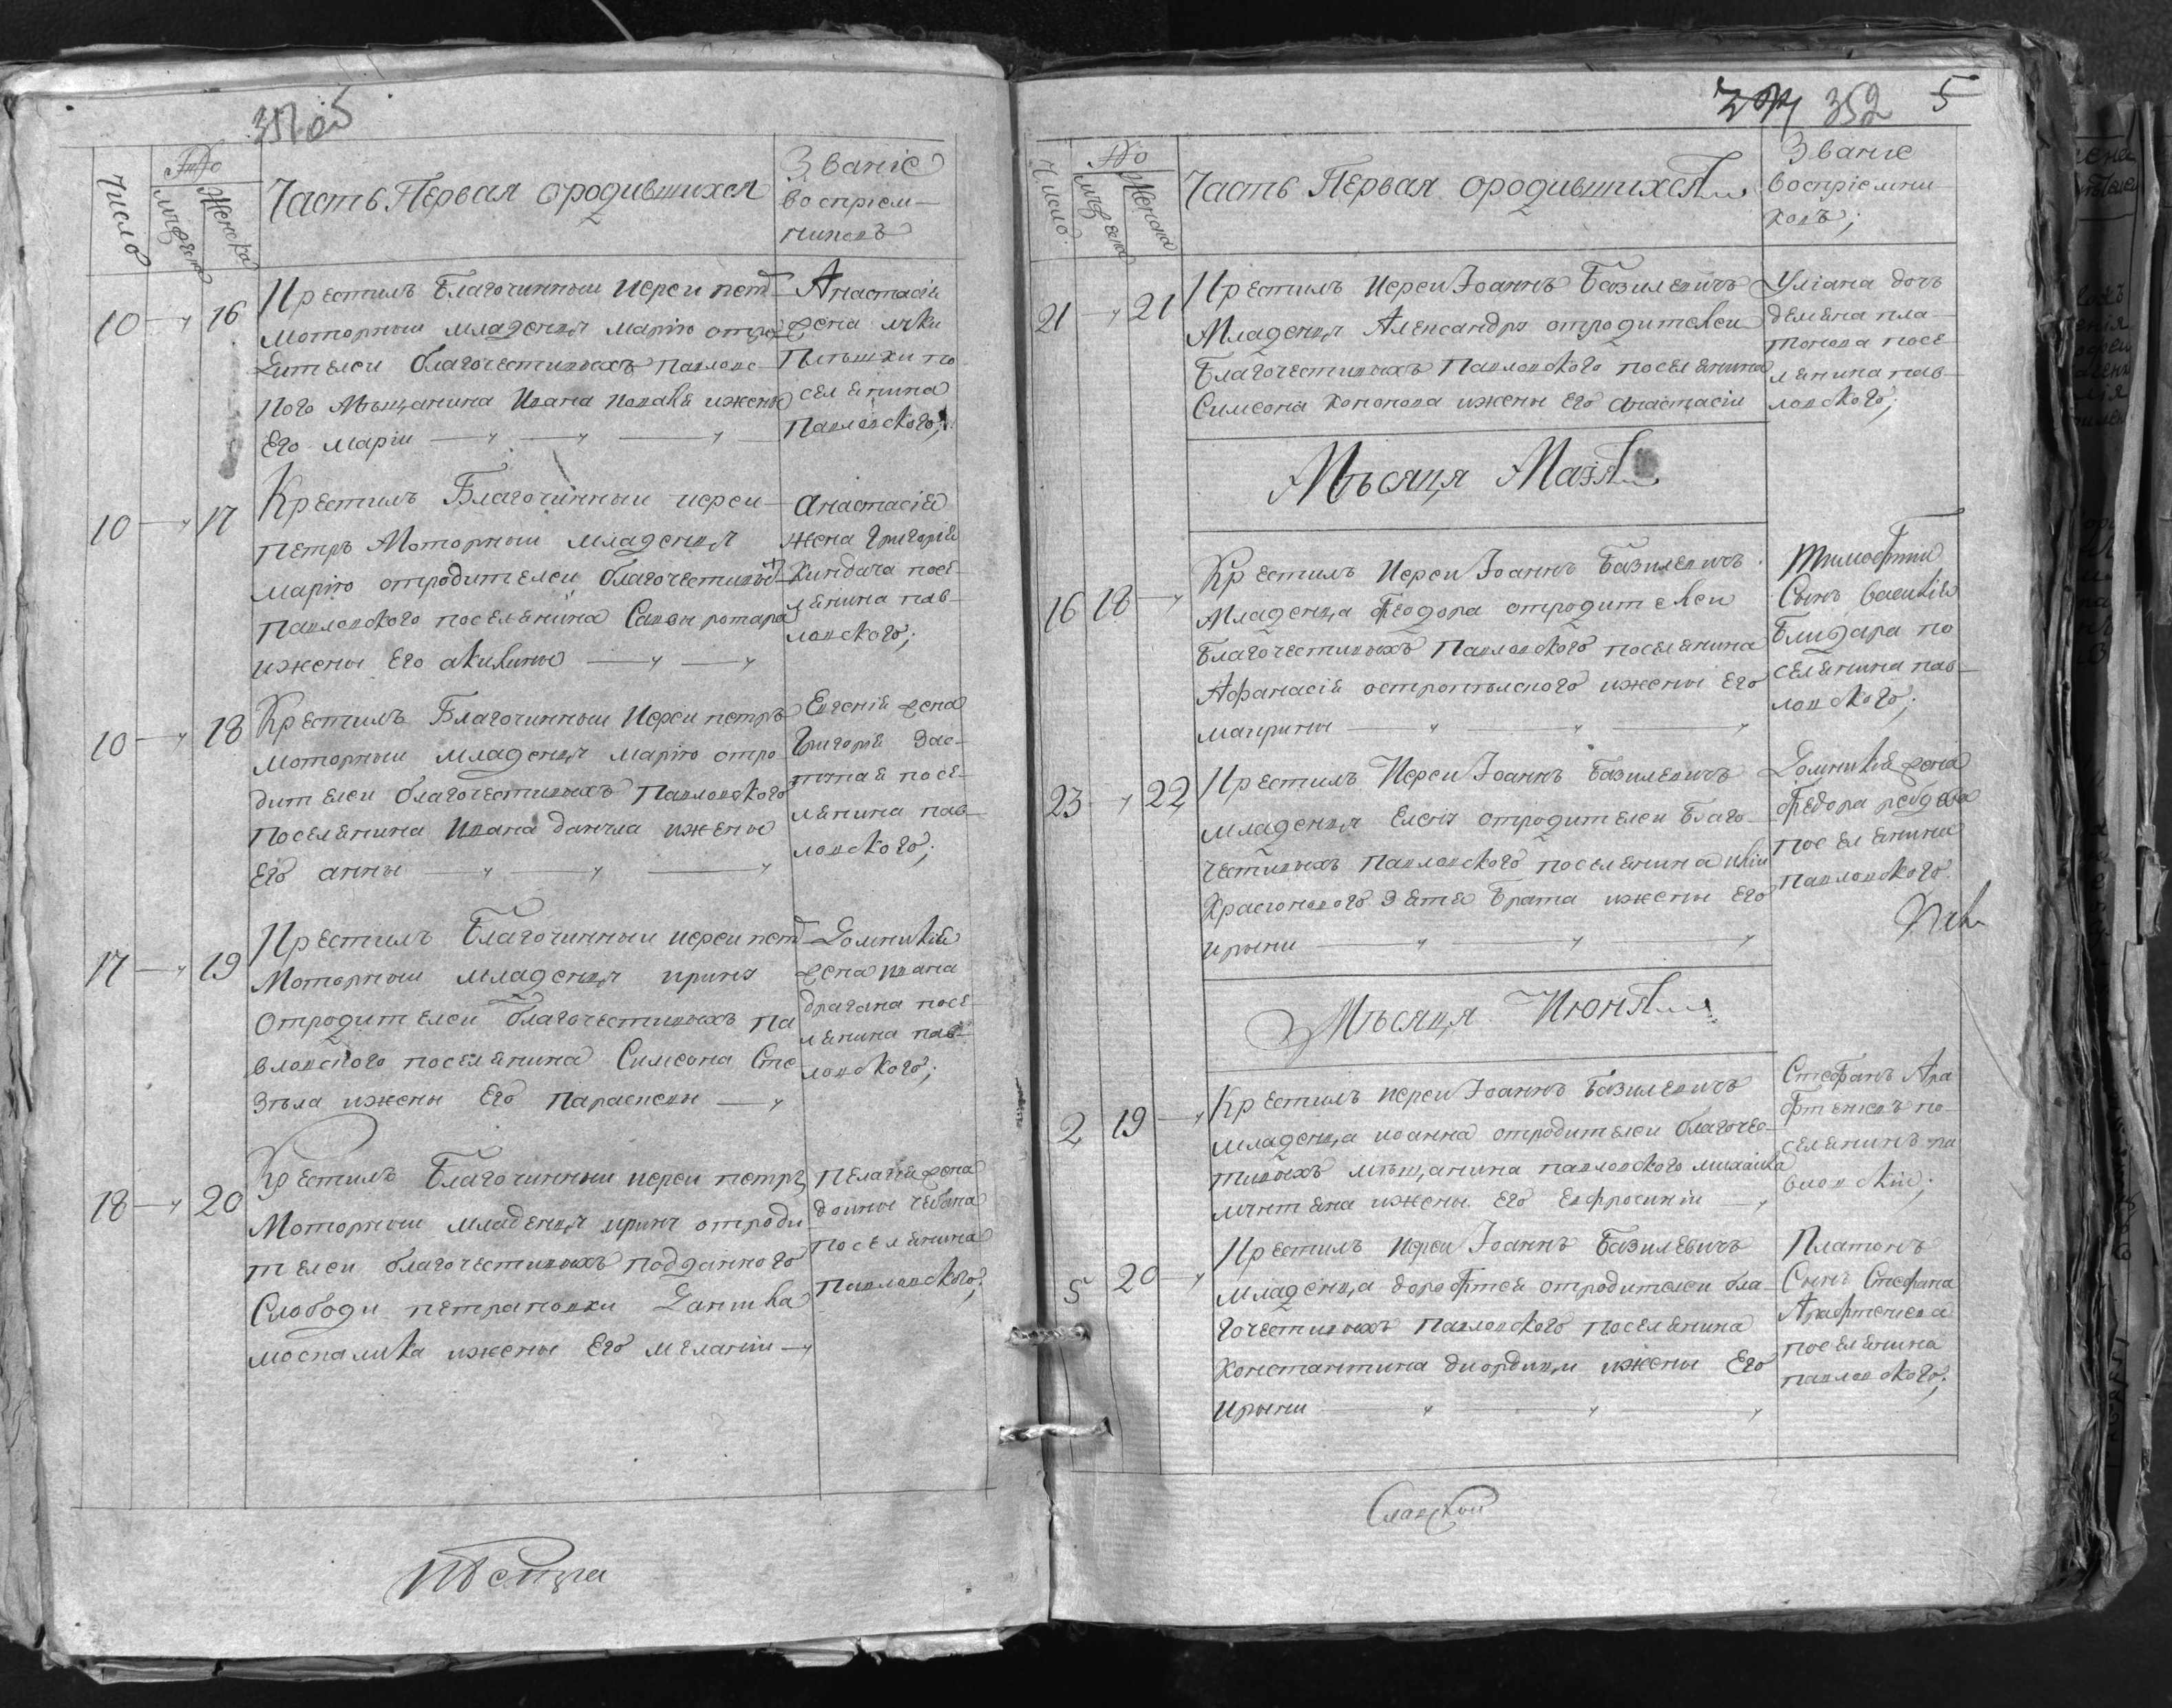 Число
Мужеска
Женска
Часть Первая ородившихся
Званіе
воспріем-
никовъ
10 - 16
Крестилъ Благочинныи Иереи петръ
Моторныи младенца марію отро
дителеи благочестивыхъ павловс-
кого Мѣщанина Ивана ижены
Его маріи
Анастасія
жена луки
по
селянина
Павловского;
10 - 17
Крестилъ Благочинныи иереи
петръ Моторныи младенца
марію отродителеи благочестивых
Павловского поселянина Савы ротара
ижены Его акилины
Анастасія
жена григорія
Киндача посе-
лянина пав-
ловского;
10 - 18
Крестилъ Благочинныи Иереи петръ
моторныи младенца марію отро
дителеи благочестивыхъ Павловского
Поселянина Ивана данила ижены
Его анны
Евгенія жена
Григорія
посе-
лянина пав-
ловского;
17 - 19
Крестилъ Благочинныи иереи петръ
Моторныи младенца ирину
Отродителеи благочестивыхъ па
вловского поселянина Симеона Сте
ижены Его Параскевы
Домникія
жена ивана
драгана посе
лянина пав-
ловского;
18 - 20
Крестилъ Благочинныи иереи петръ
Моторныи младенца ирину отроди
телеи благочестивыхъ подданного
Слободи петрановки Данила
москалика ижены Его меланіи
Пелагія жена
поселянина
Павловского;
352 5
Число
Мужеска
Женска
Часть Первая ородившихся
Званіе
воспріемни
ковъ;
21 - 21
Крестилъ Иереи Іоаннъ Базилевичъ
Младенца Александру отродителеи
Благочестивыхъ Павловского поселянина
Симеона Кононова ижены Его Анастасіи
Уліана дочь
демяна пла-
тонова посе
лянина пав-
ловского;
Мѣсяця Маія
16 18 -
Крестилъ Иереи Іоаннъ Базилевичъ
Младенца Феодора отродителеи
Благочестивыхъ Павловского поселянина
Афанасія ижены Его
мавриныи
Тимофтіи
Сынъ василія
Блидара по
селянина пав-
ловского;
23 - 22
Крестилъ Иереи Іоаннъ Базилевичъ
младенца Елену отродителеи Благо-
честивыхъ Павловского поселянина иліи
зятя Брата ижены Его
ирыни
Домникія жена
Федора
поселянина
Павловского.
Мѣсяця Июня
2 19 -
Крестилъ иереи Іоаннъ Базилевичъ
младенца иоанна отродителеи благочес-
тивыхъ мѣщанина павловского михаила
мунтяна ижены Его Евфросиніи
Стефанъ Ара
фтеновъ по-
селянинъ па
вловскіи;
5 20 -
Крестилъ Иереи Іоаннъ Базилевичъ
младенца дорофтея отродителеи бла-
гочестивыхъ Павловского поселянина
Константина диордици ижены Его
Ирыни
Платонъ
Сынъ Стефана
Арафтенова
поселянина
павловского;